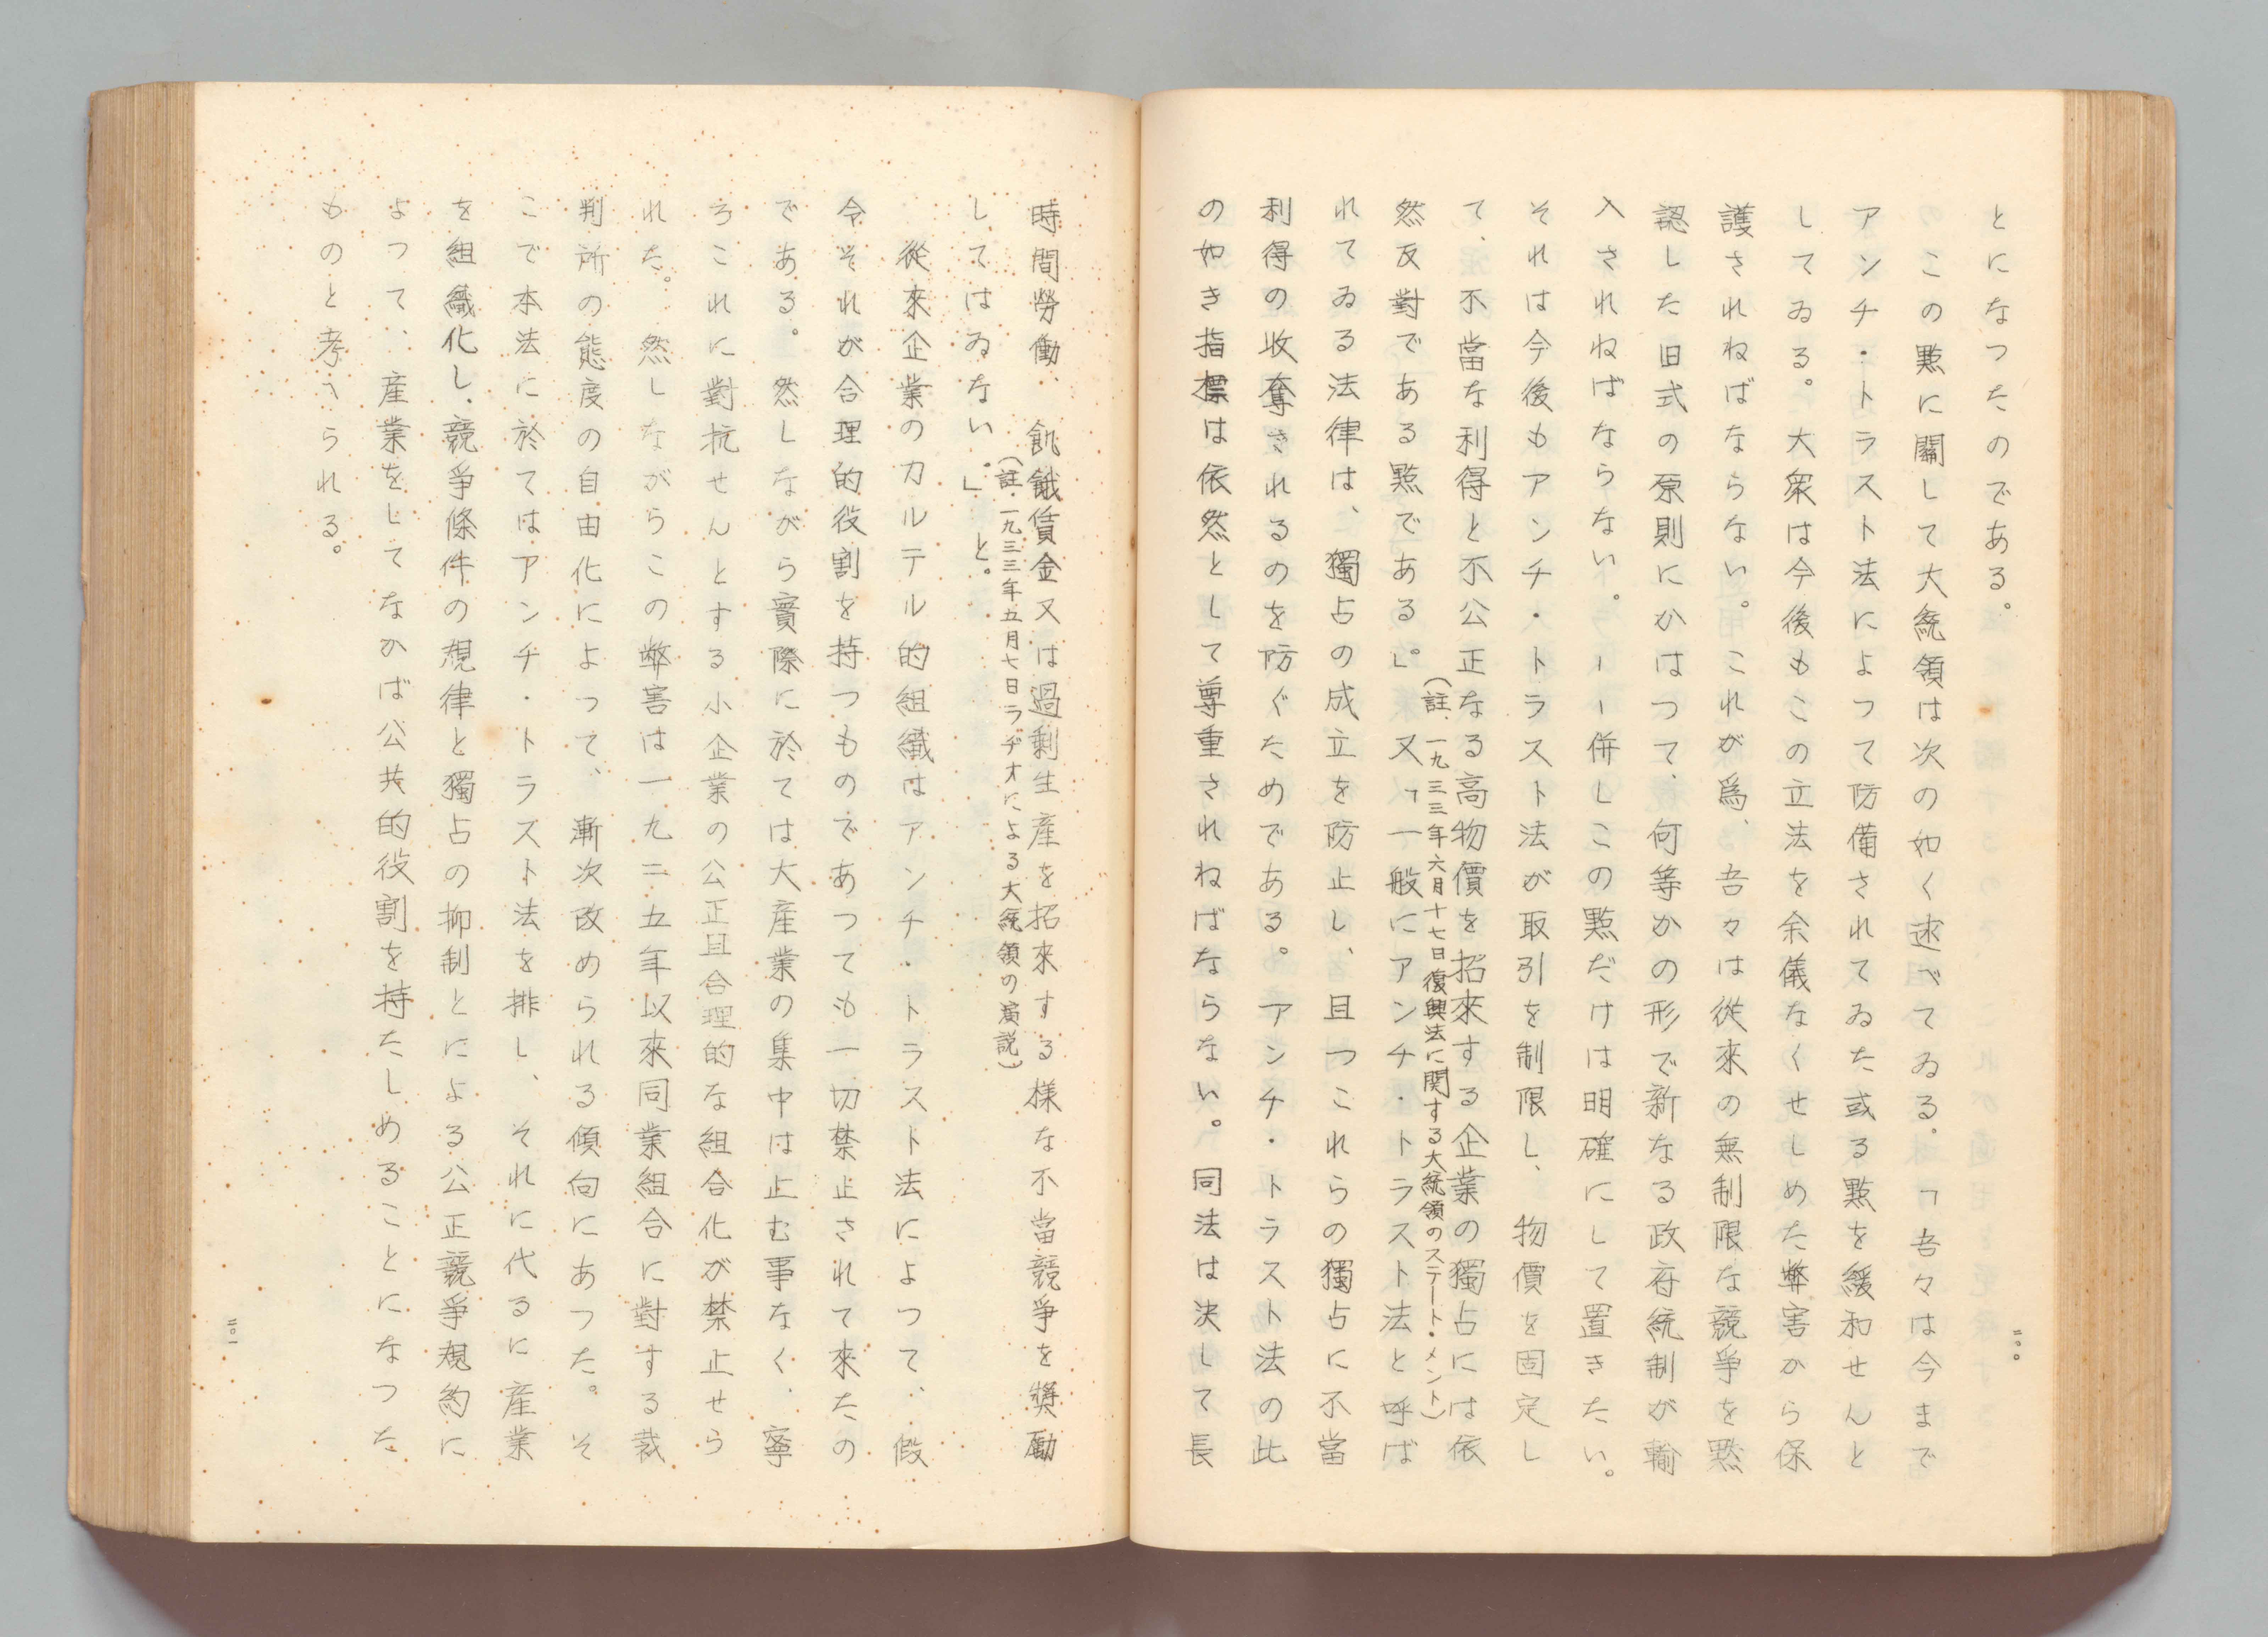 とになつたのである。
この點に關して大統領は次の如く述べてゐる。「吾々は今まで
アンチ・トラスト法によつて防備されてゐた或る點を緩和せんと
してゐる。大衆は今後もこの立法を余儀なくせしめた弊害から保
護されねばならない。これが爲、吾々は從來の無制限な競爭を默
認した旧式の原則にかはつて、何等かの形で新なる政府統制が輸
入されねばならない。ーーー併しこの點だけは明確にして置きたい。
それは今後もアンチ・トラスト法が取引を制限し、物價を固定し
て、不當な利得と不公正なる高物價を招來する企業の獨占には依
然反對である點である」。
(註、一九三三年六月十七日復興法に関する大統領のステート・メント)
又「一般にアンチ・トラスト法と呼ば
れてゐる法律は、獨占の成立を防止し、且つこれらの獨占に不當
利得の收奪されるのを防ぐためである。アンチ・トラスト法の此
の如き指標は依然として尊重されねばならない。同法は決して長
二〇〇
時間勞働、飢餓賃金又は過剩生産を招來する樣な不當競爭を奬勵
してはゐない。」
(註・一九三三年五月七日ラヂオによる大統領の演説)
と。
從來企業のカルテル的組織はアンチ・トラスト法によつて、假
令それが合理的役割を持つものであつても一切禁止されて來たの
である。然しながら實際に於ては大産業の集中は止む事なく、寧
ろこれに對抗せんとする小企業の公正且合理的な組合化が禁止せら
れた。然しながらこの弊害は一九二五年以來同業組合に對する裁
判所の態度の自由化によつて、漸次改められる傾向にあつた。そ
こで本法に於てはアンチ・トラスト法を排し、それに代るに産業
を組織化し、競爭條件の規律と獨占の抑制とによる公正競爭規約に
よつて、産業をしてなかば公共的役割を持たしめることになつた
ものと考へられる。
二〇一